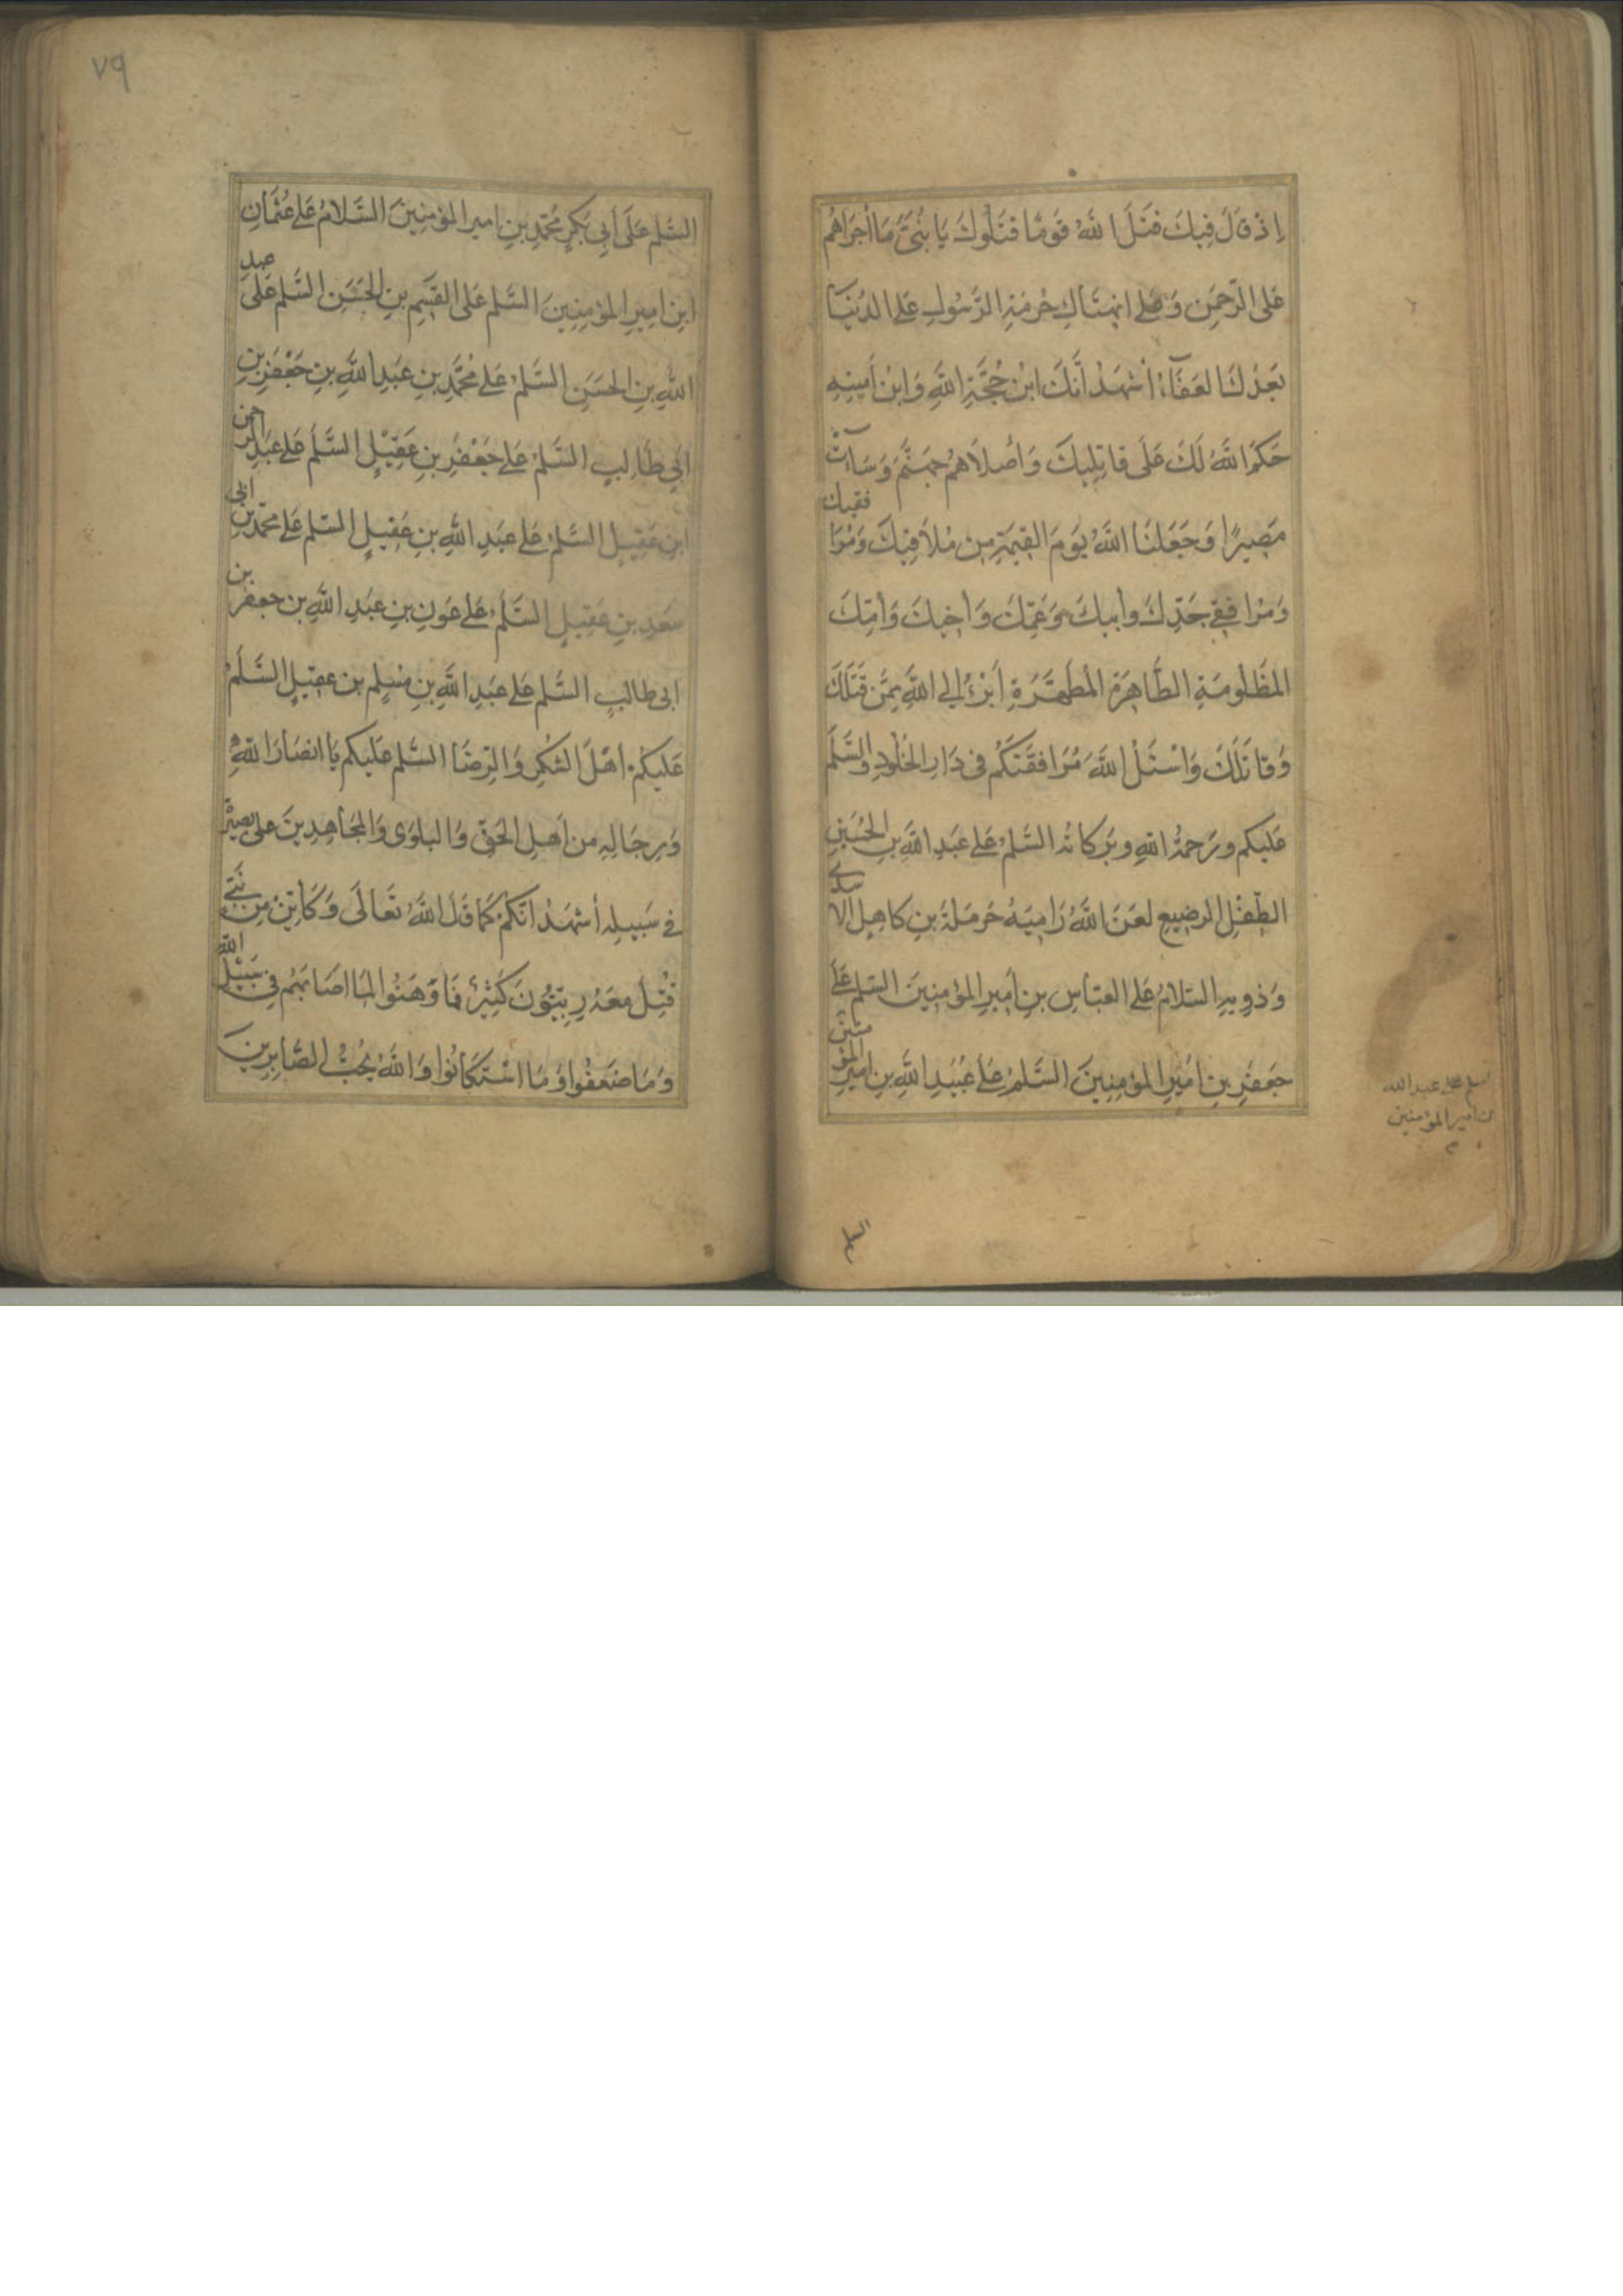 اِذْ قَالَ فِيكَ قَتَلَ اللهُ قَومًا قَتَلُوكَ يَا بُنَيَّ مَا اَجْرَاهُم
عَلى الرَّحمَنِ وَعَلى انهِتَاكِ حُرمَةِ الرَّسُولِ عَلى الدُنيَا
بَعدَكَ العَفَاءُ أَشهَدُ أَنَّكَ ابنُ حُجَّةِ اللهِ وَابنُ أَمِينِهِ
حَكَمَ اللهُ لَكَ عَلَى قَاتِلِيكَ وَأَصلاَهُم جَهَنَّمَ وَسَاءَتْ
مَصِيرًا وَجَعَلَنَا اللهُ يَومَ القِيمَةِ مِن مُلاَقِيكَ وَمُرَافقيك
وَمُرَافِقِي جَدِّكَ وَأَبِيكَ وَعَمِّكَ وَأَخِيكَ وَأُمِّكَ
المَظْلُومَةِ الطَّاهِرَةِ المُطَهَّرَةِ أَبرَءُ إِلى اللهِ مِمَّن قَتَلَكَ
وَقَاتَلَكَ وَاسْئَلُ اللهَ مُرَافَقَتَكُم فِي دَارِ الخُلُودِ وَالسَّلَمُ
عَليكم ورَحمَةُ اللهِ وبَرَكاتُه السَّلمُ عَلى عَبدِ اللهِ بنِ الحُسَينِ
الطِّفْلِ الرضِيعِ لَعَنَ اللهُ رَامِيَهُ حَرمَلَةَ بنِ كاهِلِ الاسدي
وَذَوِيهِ السَّلامُ عَلى العبّاسِ بنِ أَمِيرِ المؤمِنِينَ السَّلم عَلى
جَعفَرِ بنِ أَمِيرِ المؤمِنِينَ السَّلمُ عَلى عُبَيدِ اللهِ بنِ اميرِ المؤمنين
السلم على عبدالله
بن امير المؤمنين
٧٩
السَّلم عَلَى أَبِي بَكرٍ مُحَمَّدِ بنِ امير المؤمِنِينَ السَّلامُ عَلى عُثمَانِ
ابنِ امِيرِ المؤمِنِينَ السَّلم عَلى القسِمِ بنِ الحَسَنِ السَّلم عَلَى عبد
اللهِ بنِ الحَسَنِ السَّلمُ عَلى مُحَمَّدِ بنِ عَبدِ اللهِ بنِ جَعْفَرِ بنِ
أَبِي طَالِبٍ السَّلمُ عَلى جَعْفَرِ بنِ عَقِيْلٍ السَّلَم عَلى عَبدِ الرحمن
ابنِ عَقِيلٍ السَّلمُ عَلى عَبدِ اللهِ بنِ عَقِيلٍ السَّلم عَلى محمّدِ بنِ ابى
سَعِدِ بنِ عَقِيلٍ السَّلَمُ عَلى عَونِ بنِ عَبدِ اللهِ بن جعفر بن
ابى طالبٍ السَّلم عَلى عَبدِ اللهِ بنِ مُسلِمِ بن عقيلٍ السَّلَمُ
عَلَيكُم اَهْلَ الشُكرِ وَالرِّضَا السَّلم عَليكم يَا انصَارَ اللهِ
وَرِجَالِهِ من اَهلِ الحَقِّ وَالبلوَى وَالمُجَاهِدِينَ على بصيرة
فِي سَبِيلِهِ أَشهَدُ انَّكُم كَمَا قَالَ اللهُ تَعَالَى وَكَايِّنْ مِن نَبِيٍّ
قُتِلَ مَعَهُ رِبِّيُّونَ كَثِيرٌ فَمَا وَهَنُوا لِمَا اصَابَهُم في سَبِيْلِ الله
وَمَا ضَعفُوا وَمَا اسْتَكَانُوا وَاللهُ يُحِبُّ الصَّابِرِينَ